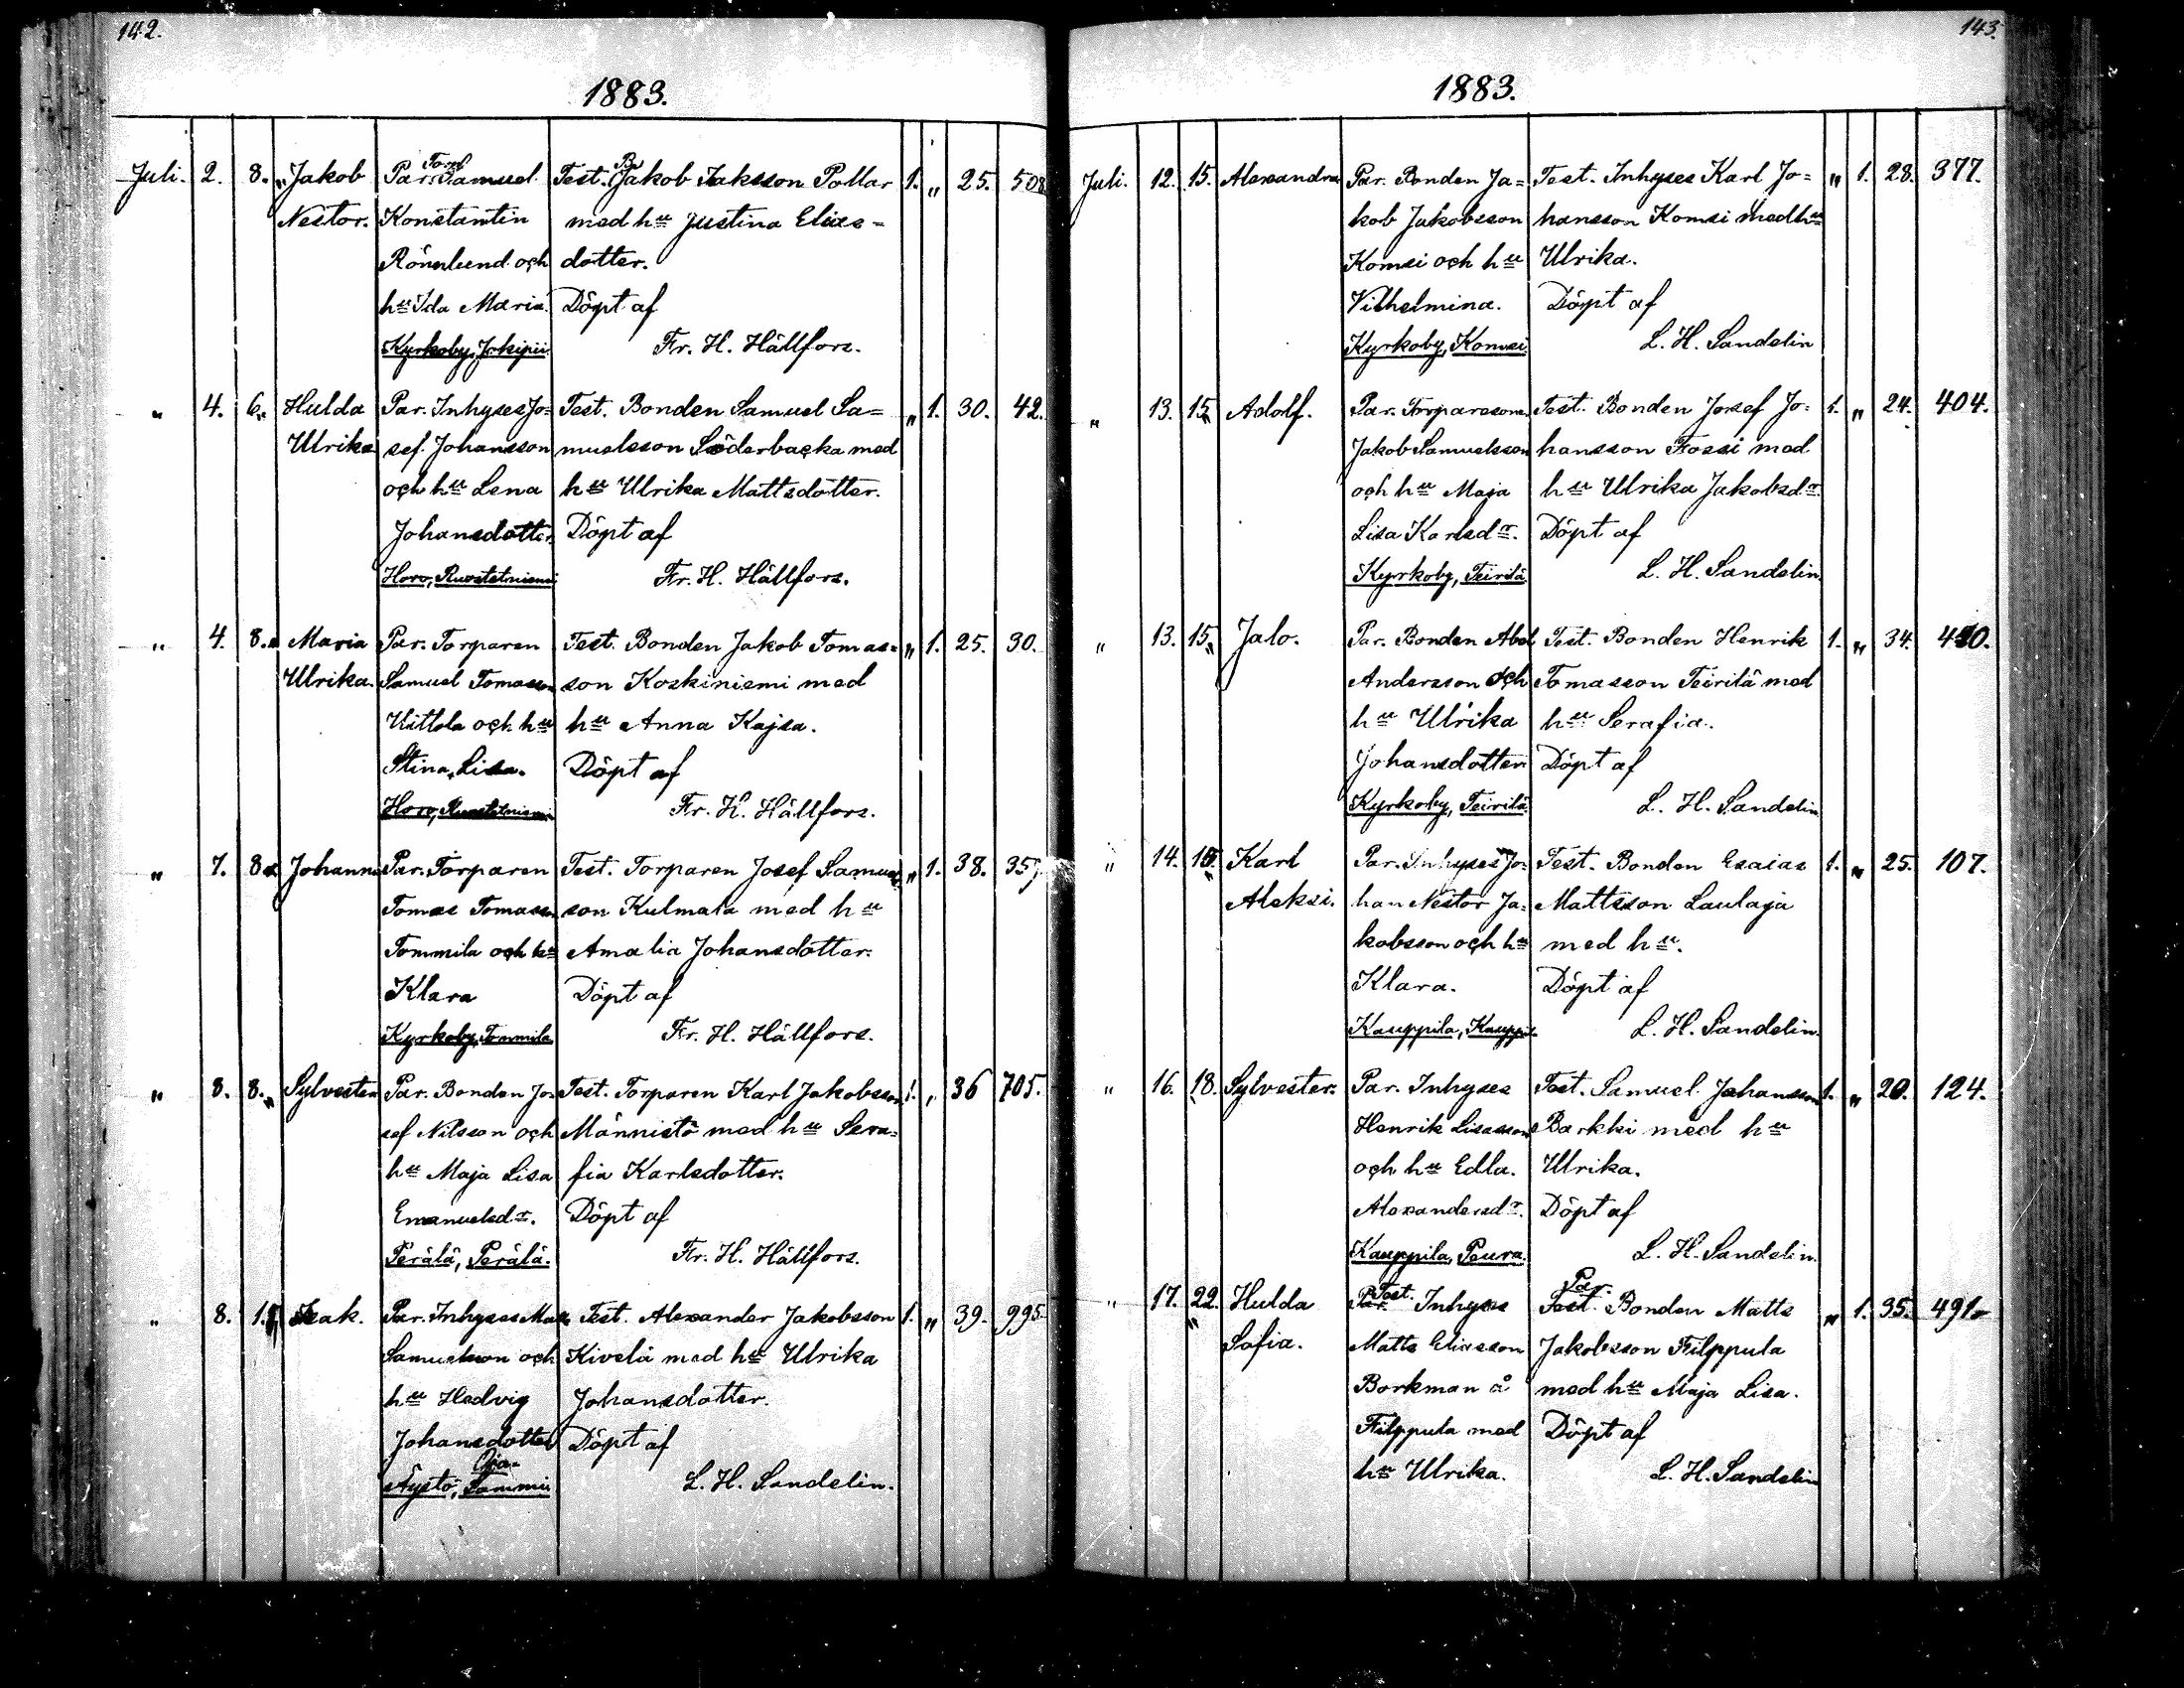 142.
1883.
Juli. 2. 8. " Jakob Par. Torp. Samuel Test. Bn Jakob Isaksson Pollar 1. " 25. 508
Nestor. Konstantin med hu Justina Elias=
Rönnlund och dotter.
hu Ida Maria. Döpt af
Kyrkoby, Jokipii Fr. H. Hällfors.
" 4. 6. " Hulda Par. Inhyses Jo= Test. Bonden Samuel Sa= " 1. 30. 42.
Ulrika sef Johansson muelsson Söderbacka med
och hu Lena hu Ulrika Mattsdotter.
Johansdotter. Döpt af
Horo, Ruostetniemi Fr. H. Hällfors.
" 4. 8. " Maria Par. Torparen Test. Bonden Jakob Tomas= " 1. 25. 30.
Ulrika. Samuel Tomasson son Koskiniemi med
Kittola och hu hu Anna Kajsa.
Stina Lisa. Döpt af
Horo, Ruostetniemi Fr. H. Hällfors.
" 7. 8. Johanna Par. Torparen Test. Torparen Josef Samuels " 1. 38. 357.
Tomas Tomasson son Kulmala med hu
Tommila och hu Amalia Johansdotter.
Klara Döpt af
Kyrkoby, Tommila Fr. H. Hällfors.
" 8. 8. " Sylvester Par. Bonden Jo= Test. Torparen Karl Jakobsson 1. " 36 705.
sef Nilsson och Männistö med hu Sera=
hu Maja Lisa fia Karlsdotter.
Emanuelsdr. Döpt af
Perälä, Perälä. Fr. H. Hällfors.
" 8. Isak. Par. Inhyses Matts Test. Alexander Jakobsson 1. " 39. 995.
Samuelsson och Kivelä med hu Ulrika
hu Hedvig Johansdotter.
Johansdotter Döpt af
Äystö, L. H. Sandelin.
143.
1883.
Juli. 12. 15. Alexandra Par. Bonden Ja= Test. Inhyses Karl Jo= " 1. 28. 377.
kob Jakobsson hansson Komsi med hu
Komsi och hu Ulrika.
Vilhelmina. Döpt af
Kyrkoby, Komsi L. H. Sandelin
" 13. 15. " Adolf. Par. Torparesonen Test. Bonden Josef Jo= 1. " 24. 404.
Jakob Samuelsson hansson Fossi med
och hu Maja hu Ulrika Jakobsdr.
Lisa Karlsdr. Döpt af
Kyrkoby, Teirilä L. H. Sandelin.
" 13. 15. " Jalo. Par. Bonden Abel Test. Bonden Henrik 1. " 34. 420.
Andersson och Tomasson Teirilä med
hu Ulrika hu Serafia.
Johansdotter Döpt af
Kyrkoby, Teirilä. L. H. Sandelin
" 14. 15. " Karl Par. Inhyses Jo= Test. Bonden Esaias 1. " 25. 107.
Aleksi. han Nestor Ja= Mattsson Laulaja
kobsson och hu med hu.
Klara. Döpt af
Kauppila, Kauppila L. H. Sandelin.
" 16. 18. Sylvester. Par. Inhyses Test. Samuel Johansson 1. " 20. 124.
Henrik Lisasson Barkki med hu
och hu Edla. Ulrika.
Alexandersdr. Döpt af
Kauppila, Peura. L. H. Sandelin.
" 17. 22. " Hulda Par. Test. Inhyses Test. Par. Bonden Matts " 1. 35. 491.
Sofia. Matts Eliasson Jakobsson Filppula
Borkman å med hu Maja Lisa.
Filppula med Döpt af
hu Ulrika. L. H. Sandelin